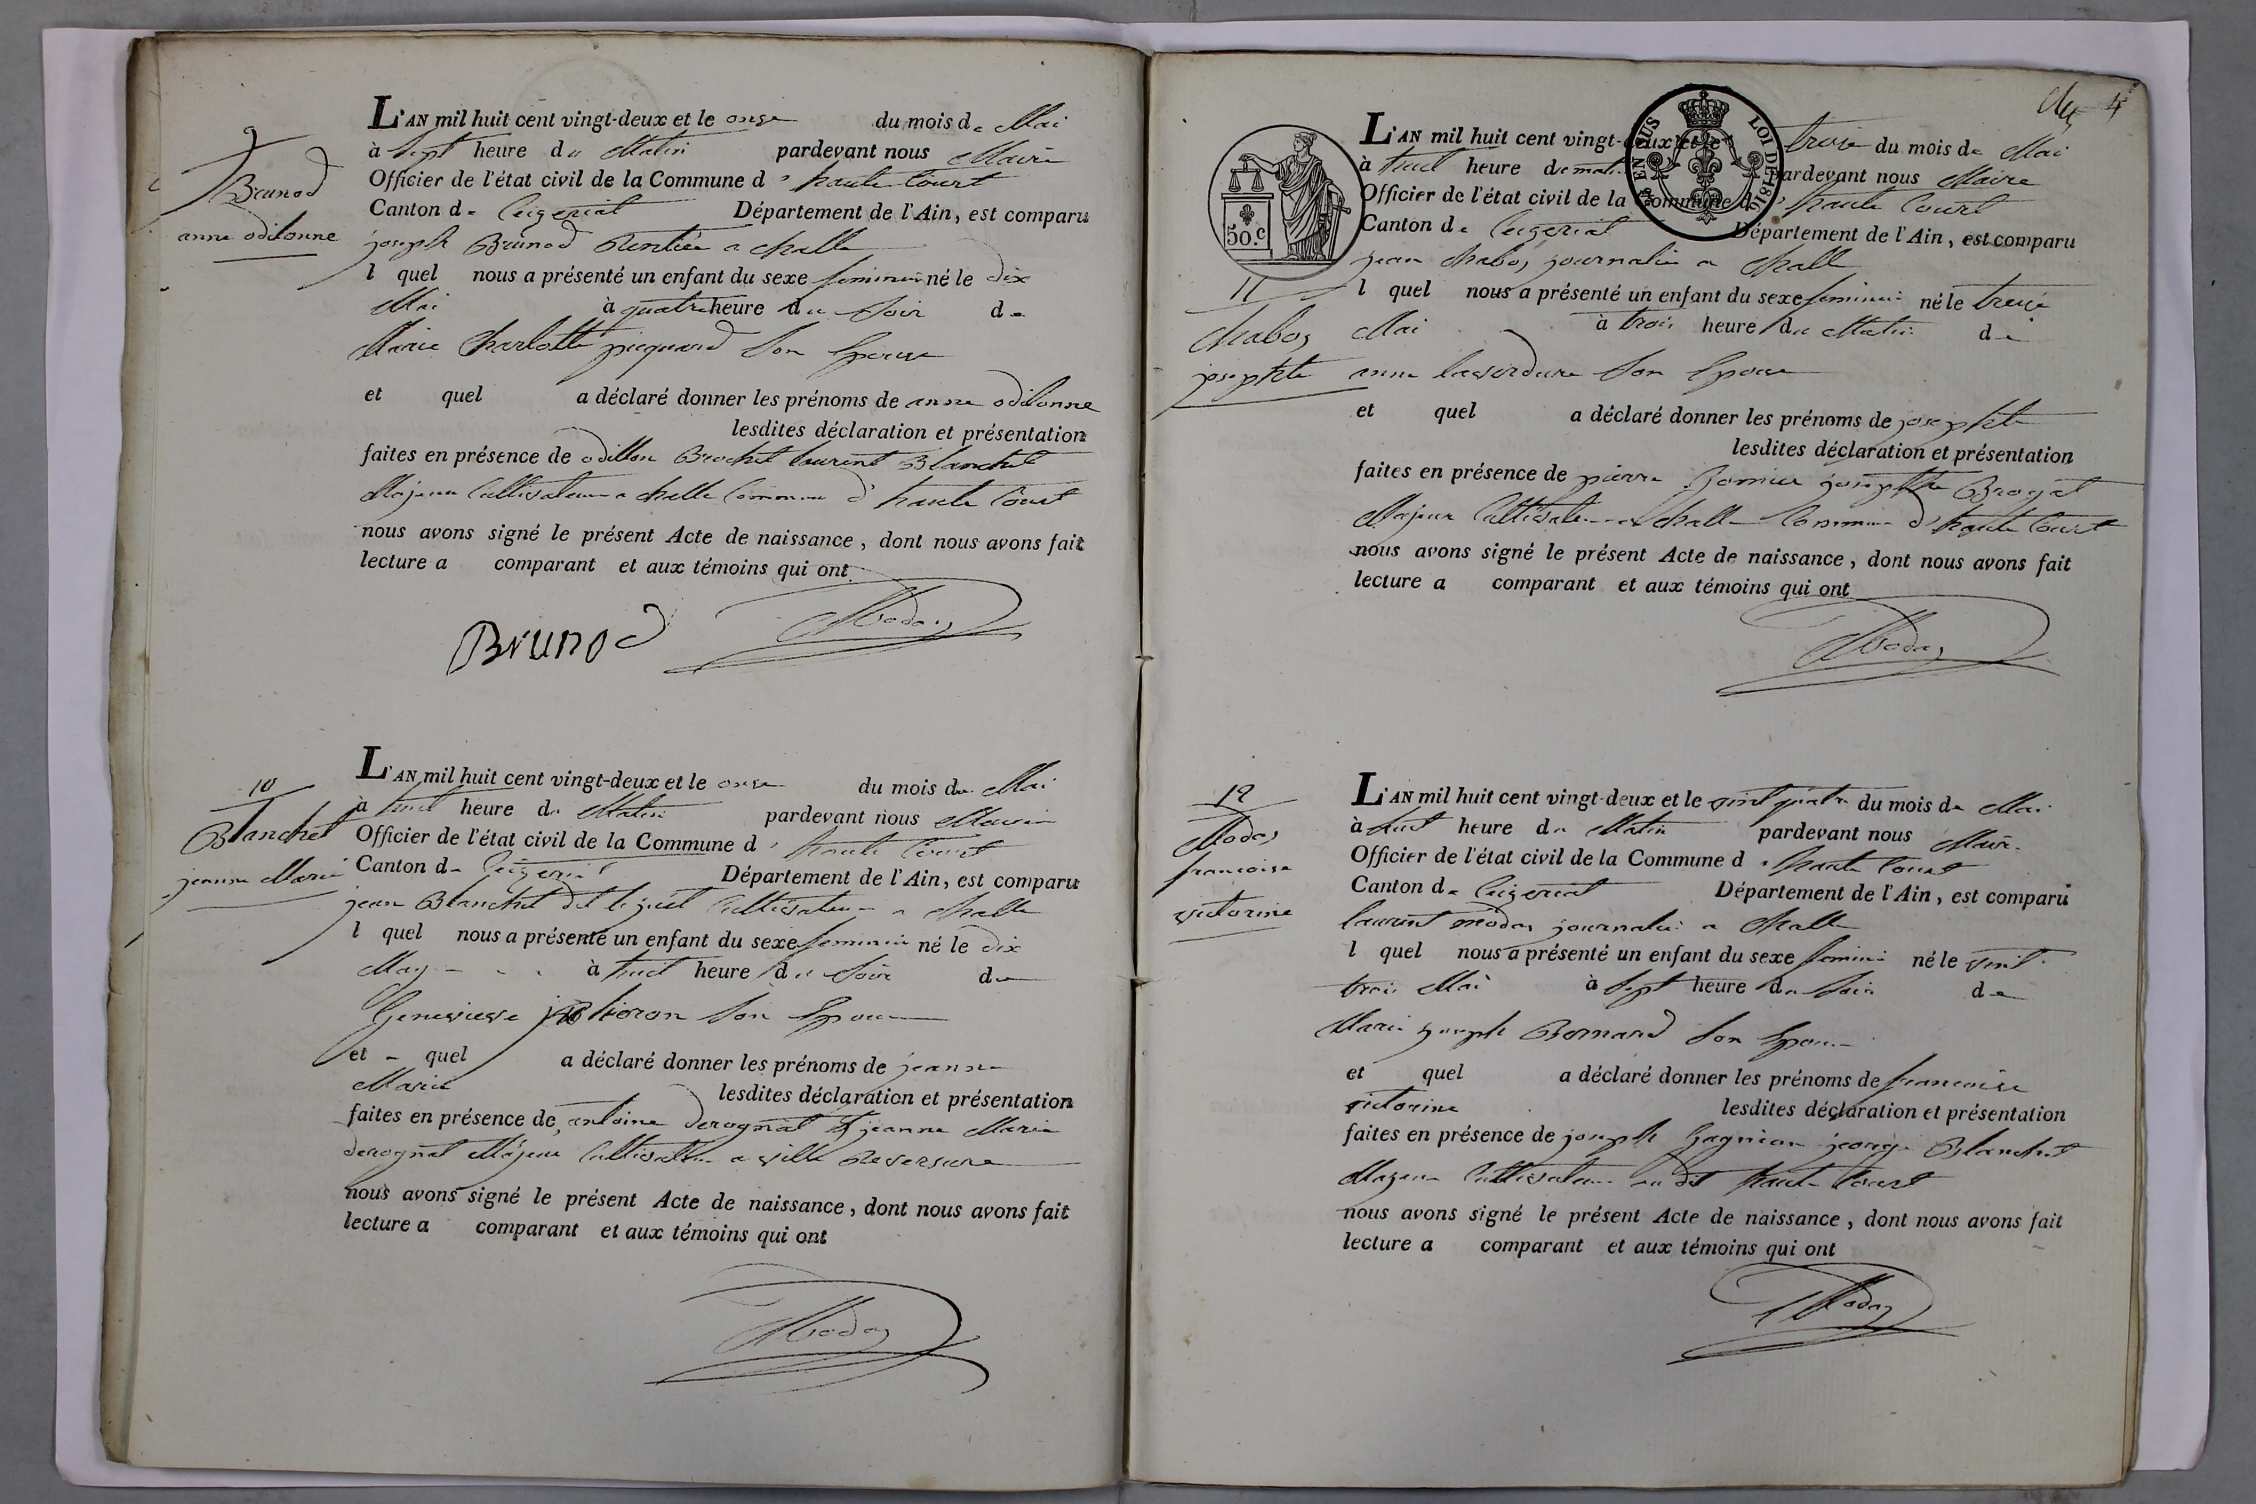 9
Brunod
anne odilonne
L'AN mil huit cent vingt-deux et le onze du mois de Mai
à sept heure du Matin pardevant nous Maire
Officier de l'état civil de la Commune d'haute Court
Canton de Ceizeriat Département de l'Ain, est comparu
joseph Brunod Rentier a challe
l quel nous a présenté un enfant du sexe feminin né le dix
Mai à quatre heure du Soir de
Marie Charlotte Son Epouse
et quel a déclaré donner les prénoms de anne odilonne
lesdites déclaration et présentation
faites en présence de odillon Brochet laurent Blanchet
Majeur Cultivateur a challe Commune d'haute Court
nous avons signé le présent Acte de naissance, dont nous avons fait
lecture a comparant et aux témoins qui ont
Brunod Modas
10
Blanchet
jeanne Marie
L'AN mil huit cent vingt-deux et le onze du mois de Mai
à huit heure du Matin pardevant nous Maire
Officier de l'état civil de la Commune d'haute Court
Canton de Ceizeriat Département de l'Ain, est comparu
jean Blanchet dit Cultivateur a challe
l quel nous a présenté un enfant du sexe feminin né le dix
May à huit heure du Soir de
Genevieve Son Epouse
et quel a déclaré donner les prénoms de jeanne
Marie lesdites déclaration et présentation
faites en présence de antoine derognat et jeanne Marie
derognat Majeur Cultivateur a ville Reversure
nous avons signé le présent Acte de naissance, dont nous avons fait
lecture a comparant et aux témoins qui ont
Modas
4
50.c
TIMB EN SUS LOI DE 1816
11
Chabos
josephte
L'AN mil huit cent vingt-deux et le treize du mois de Mai
à huit heure du mat. pardevant nous Maire
Officier de l'état civil de la Commune d'haute Court
Canton de Ceizeriat Département de l'Ain, est comparu
jean chabos journalier a challe
l quel nous a présenté un enfant du sexe feminin né le treize
Mai à trois heure du Matin de
anne laverdure Son Epouse
et quel a déclaré donner les prénoms de josephte
lesdites déclaration et présentation
faites en présence de pierre josephte Brogat
Majeur Cultivateur a challe Commune d'haute Court
nous avons signé le présent Acte de naissance, dont nous avons fait
lecture a comparant et aux témoins qui ont
Modas
12
Modas
francoise
victorine
L'AN mil huit cent vingt-deux et le vint quatre du mois de Mai
à huit heure du Matin pardevant nous Maire
Officier de l'état civil de la Commune d'haute Court
Canton de Ceizeriat Département de l'Ain, est comparu
laurent modas journalier a challe
l quel nous a présenté un enfant du sexe feminin né le vint
trois Mai à Sept heure du Soir de
Marie joseph Bornand Son Epouse
et quel a déclaré donner les prénoms de francoise
victorine lesdites déclaration et présentation
faites en présence de joseph Gagnion george Blanchet
Majeur Cultivateur au dit haute Court
nous avons signé le présent Acte de naissance, dont nous avons fait
lecture a comparant et aux témoins qui ont
Modas